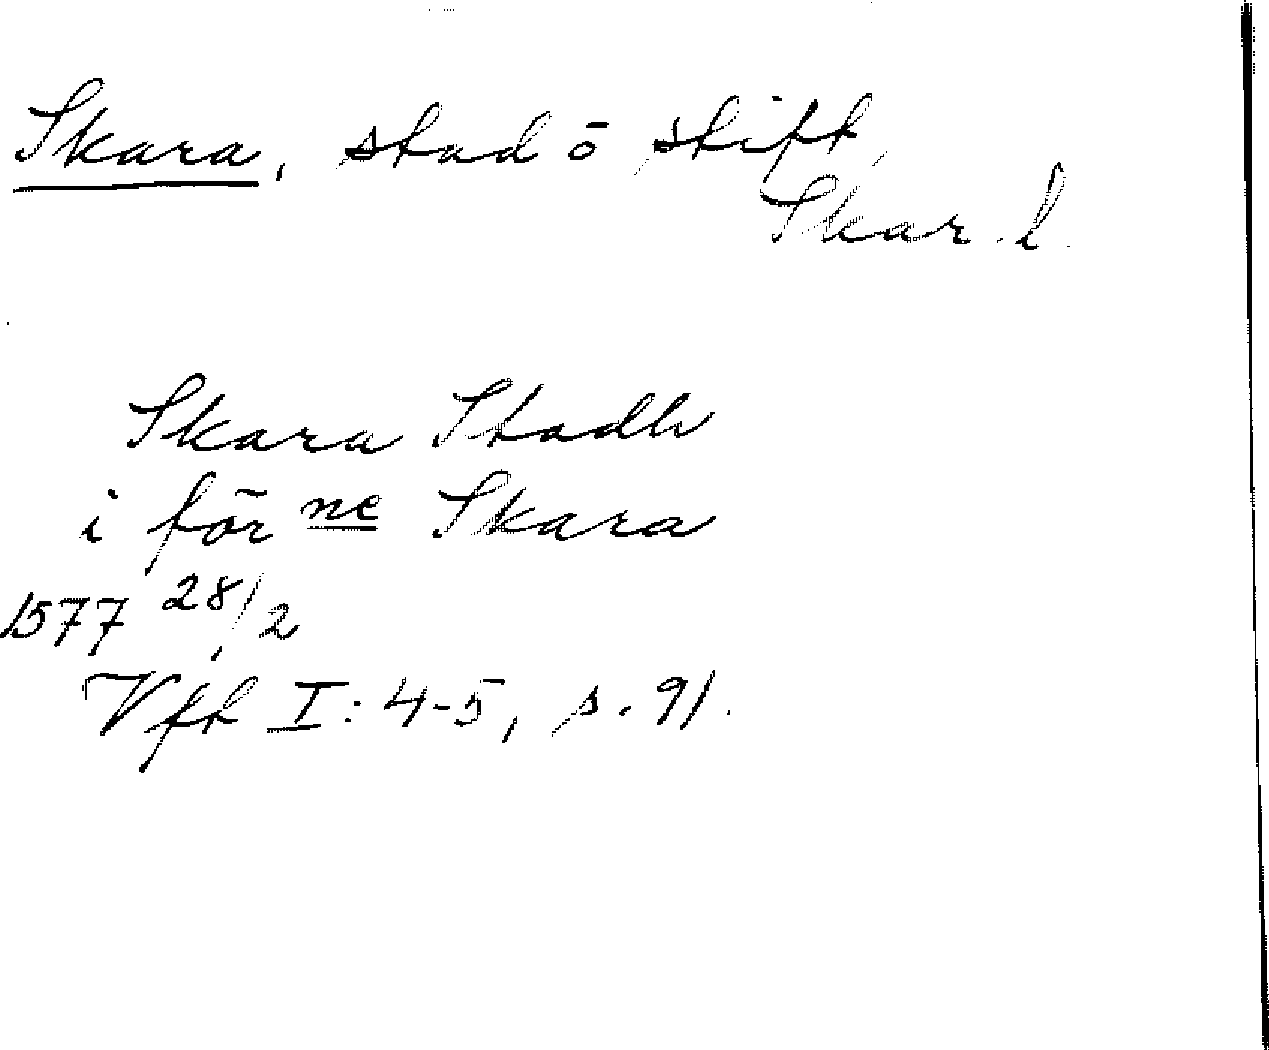 Skara, stad o stift,
Skar. l.
Skara Stadh
i för ne Skara
1577 28/2
Vft I: 4-5, s. 91.